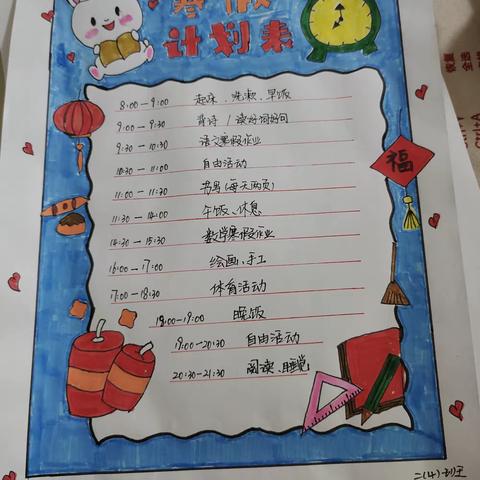 寒假
计划表
8:00-9:00 起床、洗漱、早饭
9:00-9:30 背诗/读好词好句
9:30-10:30 语文寒假作业
10:30-11:00 自由活动
11:00-11:30 书写(每天两页)
11:30-14:00 午饭、休息
14:30-15:30 数学寒假作业
16:00-17:00 绘画、手工
17:00-18:30 体育活动
18:00-19:00 晚饭
19:00-20:30 自由活动
20:30-21:30 阅读、睡觉
福
二(4)